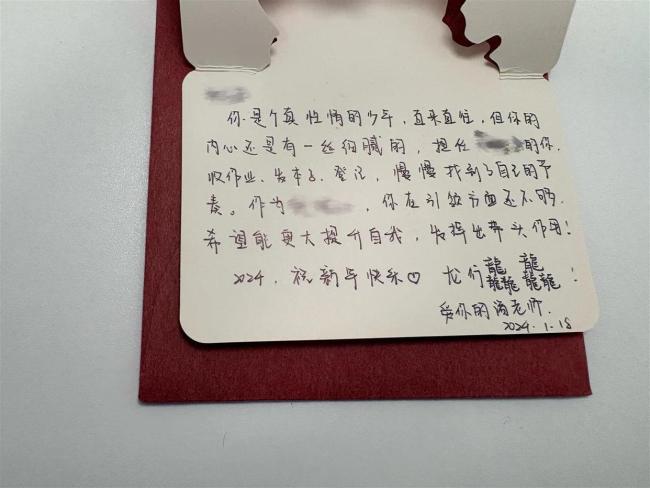 你是个真性情的少年，直来直往，但你的
内心还是有一丝细腻的，担任的你，
收作业、发本子、登记，慢慢找到了自己的节
奏。作为，你在引领方面还不够，
希望能更大提升自我，发挥出带头作用！
2024，祝新年快乐♡ 龙行龘龘！
爱你的老师．
2024.1.18